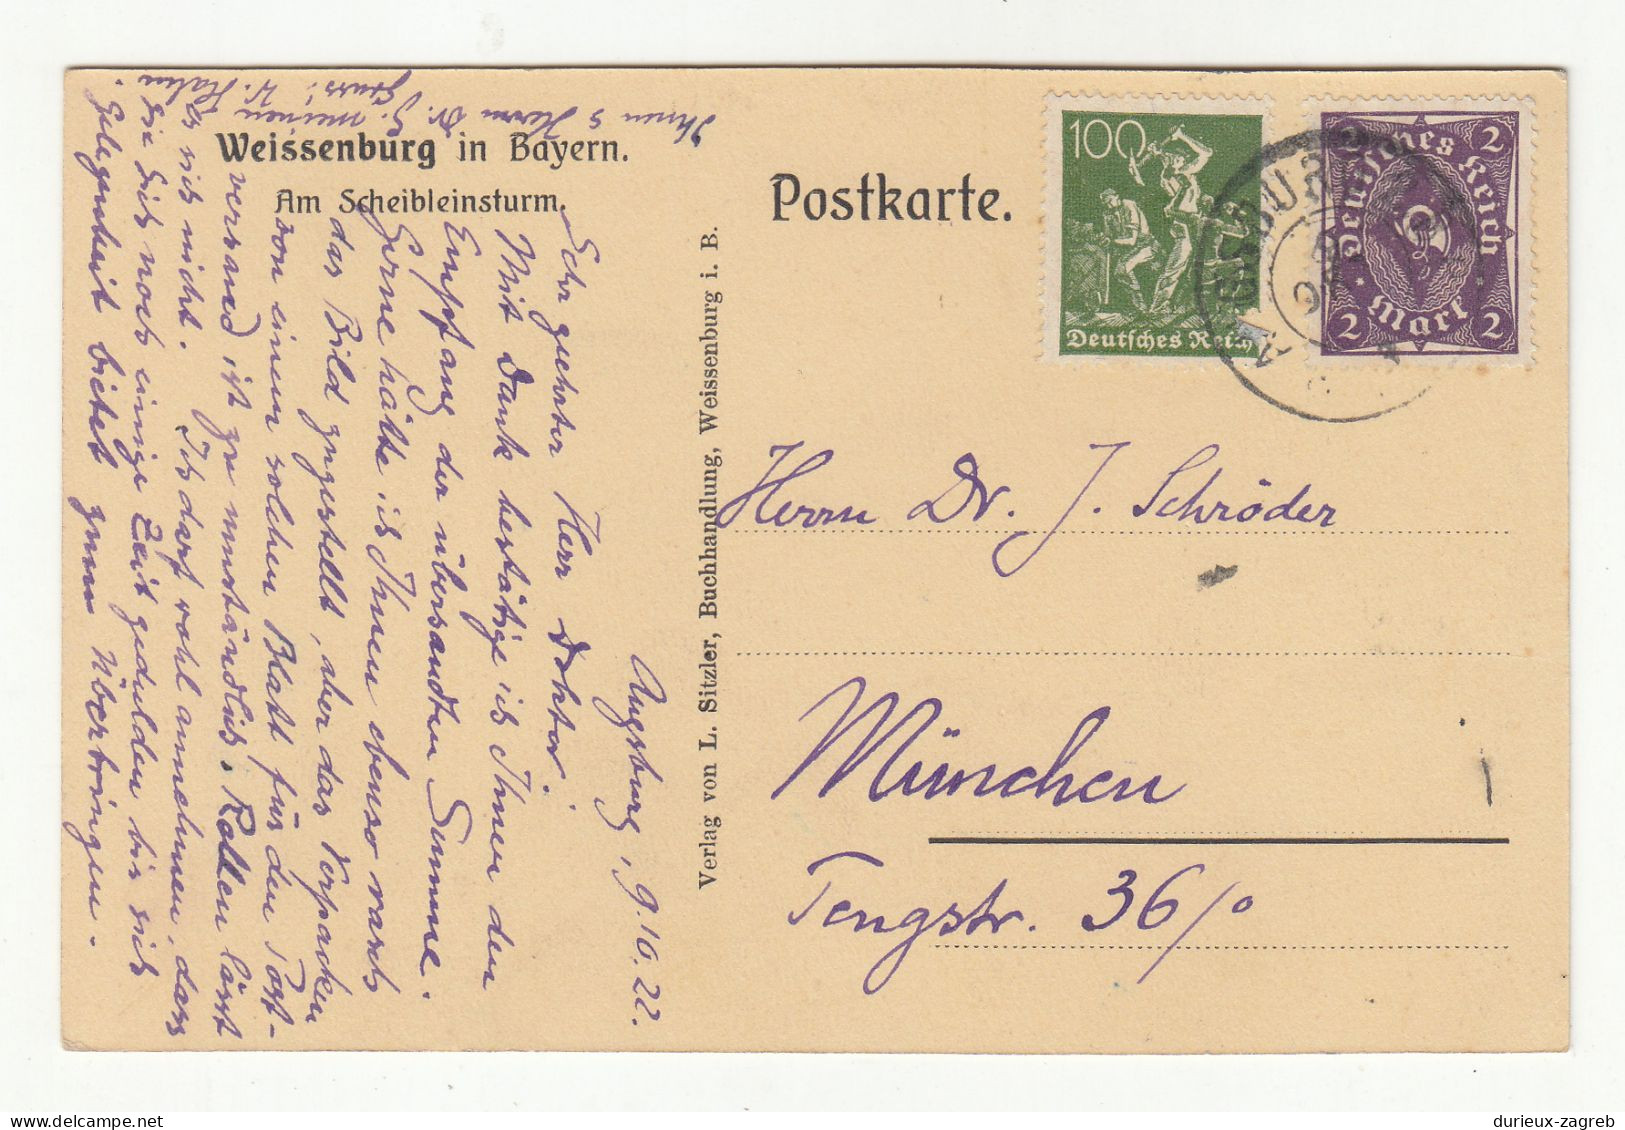 Weissenburg in Bayern.
Am Scheibleinsturm.
Postkarte.
100
Deutsches Reich
2 2
Deutsches Reich
2 Mark 2
AUGSBURG
Verlag von L. Sitzler, Buchhandlung, Weissenburg i. B.
Augsburg, 9.10.22.
Sehr geehrter Herr Doktor!
Mit Dank bestätige ich Ihnen den
Empfang der übersandten Summe.
Gerne hätte ich Ihnen ebenso rasch
das Bild zugestellt, aber das Verpacken
von einem solchen Blatt für den Post-
versand ist zu umständlich. Rollen lässt
es sich nicht. Ich darf wohl annehmen, dass
Sie sich noch einige Zeit gedulden bis sich
Gelegenheit bietet zum Überbringen.
Ihnen & Herrn Dr. G. meinen
Gruss! K. Hahn
Herrn Dr. J. Schröder
München
Tengstr. 36/0
durieux-zagreb